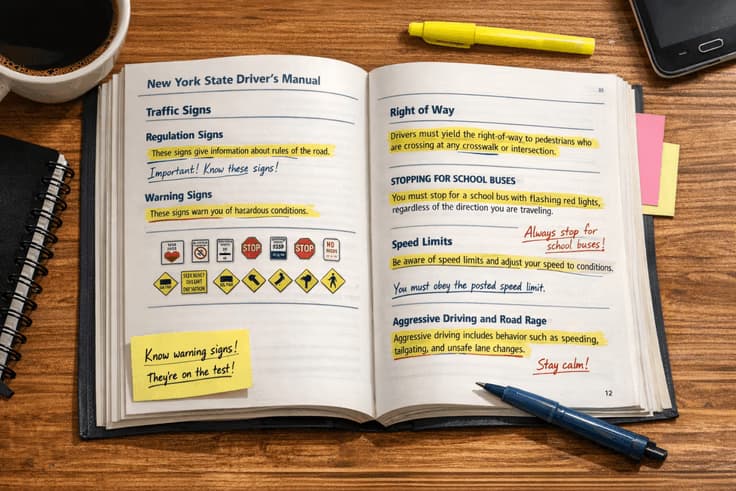 New York State Driver's Manual
Traffic Signs
Regulation Signs
These signs give information about rules of the road.
Important! Know these signs!
Warning Signs
These signs warn you of hazardous conditions.
STOP
STOP
NO
Know warning signs!
They're on the test!
Right of Way
Drivers must yield the right-of-way to pedestrians who
are crossing at any crosswalk or intersection.
STOPPING FOR SCHOOL BUSES
You must stop for a school bus with flashing red lights,
regardless of the direction you are traveling.
Always stop for
school buses!
Speed Limits
Be aware of speed limits and adjust your speed to conditions.
You must obey the posted speed limit.
Aggressive Driving and Road Rage
Aggressive driving includes behavior such as speeding,
tailgating, and unsafe lane changes.
Stay calm!
12